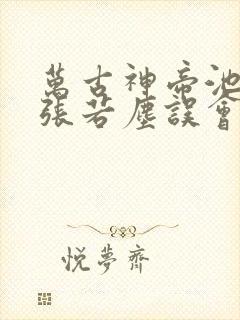 萬古神帝池
張若塵誤會
悅夢齊